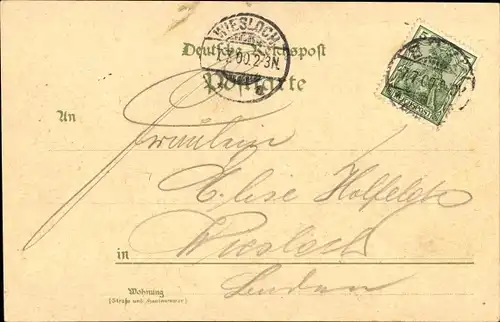 WIESLOCH
1.7.00.2-3N.
Deutsche Reichspost
Postkarte
An
Fräulein
Elise Holfelder
in Wiesloch
Baden
Wohnung
(Straße und Hausnummer)